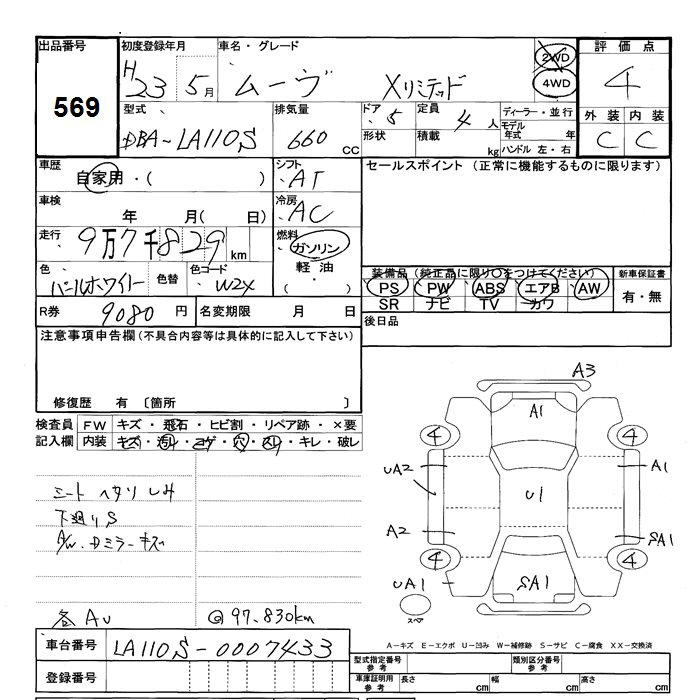 出品番号 初度登録年月 車名・グレード 評価点
569 H23 5月 ムーヴ Xリミテッド 2WD 4WD 4
型式 排気量 ドア 5 定員 4人 ディーラー・並行 外装 内装
DBA-LA110S 660 CC 形状 積載 kg モデル年式 年 ハンドル 左・右 C C
車歴 シフト セールスポイント (正常に機能するものに限ります)
自家用・( ) AT
車検 冷房
年 月( 日) AC
走行 燃料
9万7千829km ガソリン
色 パールホワイト 色替 色コード W24 軽油 ( ・ )
装備品 (純正品に限り○をつけてください) 新車保証書
PS PW ABS エアB AW 有・無
SR ナビ TV カワ
R券 9080円 名変期限 月 日 後日品
注意事項申告欄(不具合内容等は具体的に記入して下さい)
修復歴 有 〔箇所 〕
検査員 FW キズ・飛石・ヒビ割・リペア跡・×要
記入欄 内装 キズ・汚れ・コゲ・穴・スレ・キレ・破レ
シート ヘタリ しみ
下廻りS
A/W・Dミラーキズ
各AU @97.830km
A3
A1
4 4
UA2 A1
U1
A2 SA1
4 4
UA1 SA1
スペア
A-キズ E-エクボ U-凹み W-補修跡 S-サビ C-腐食 XX-交換済
車台番号 LA110S-0007433
登録番号
型式指定番号 参考 類別区分番号 参考
車庫証明用 参考 長さ cm 幅 cm 高さ cm